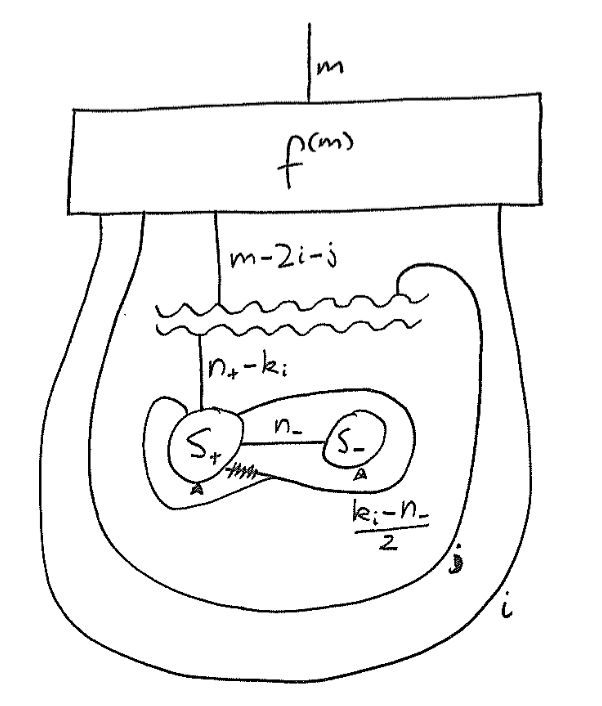 m
f^(m)
m-2i-j
n₊-kᵢ
S₊ n₋ S₋
kᵢ-n₋
2
j
i